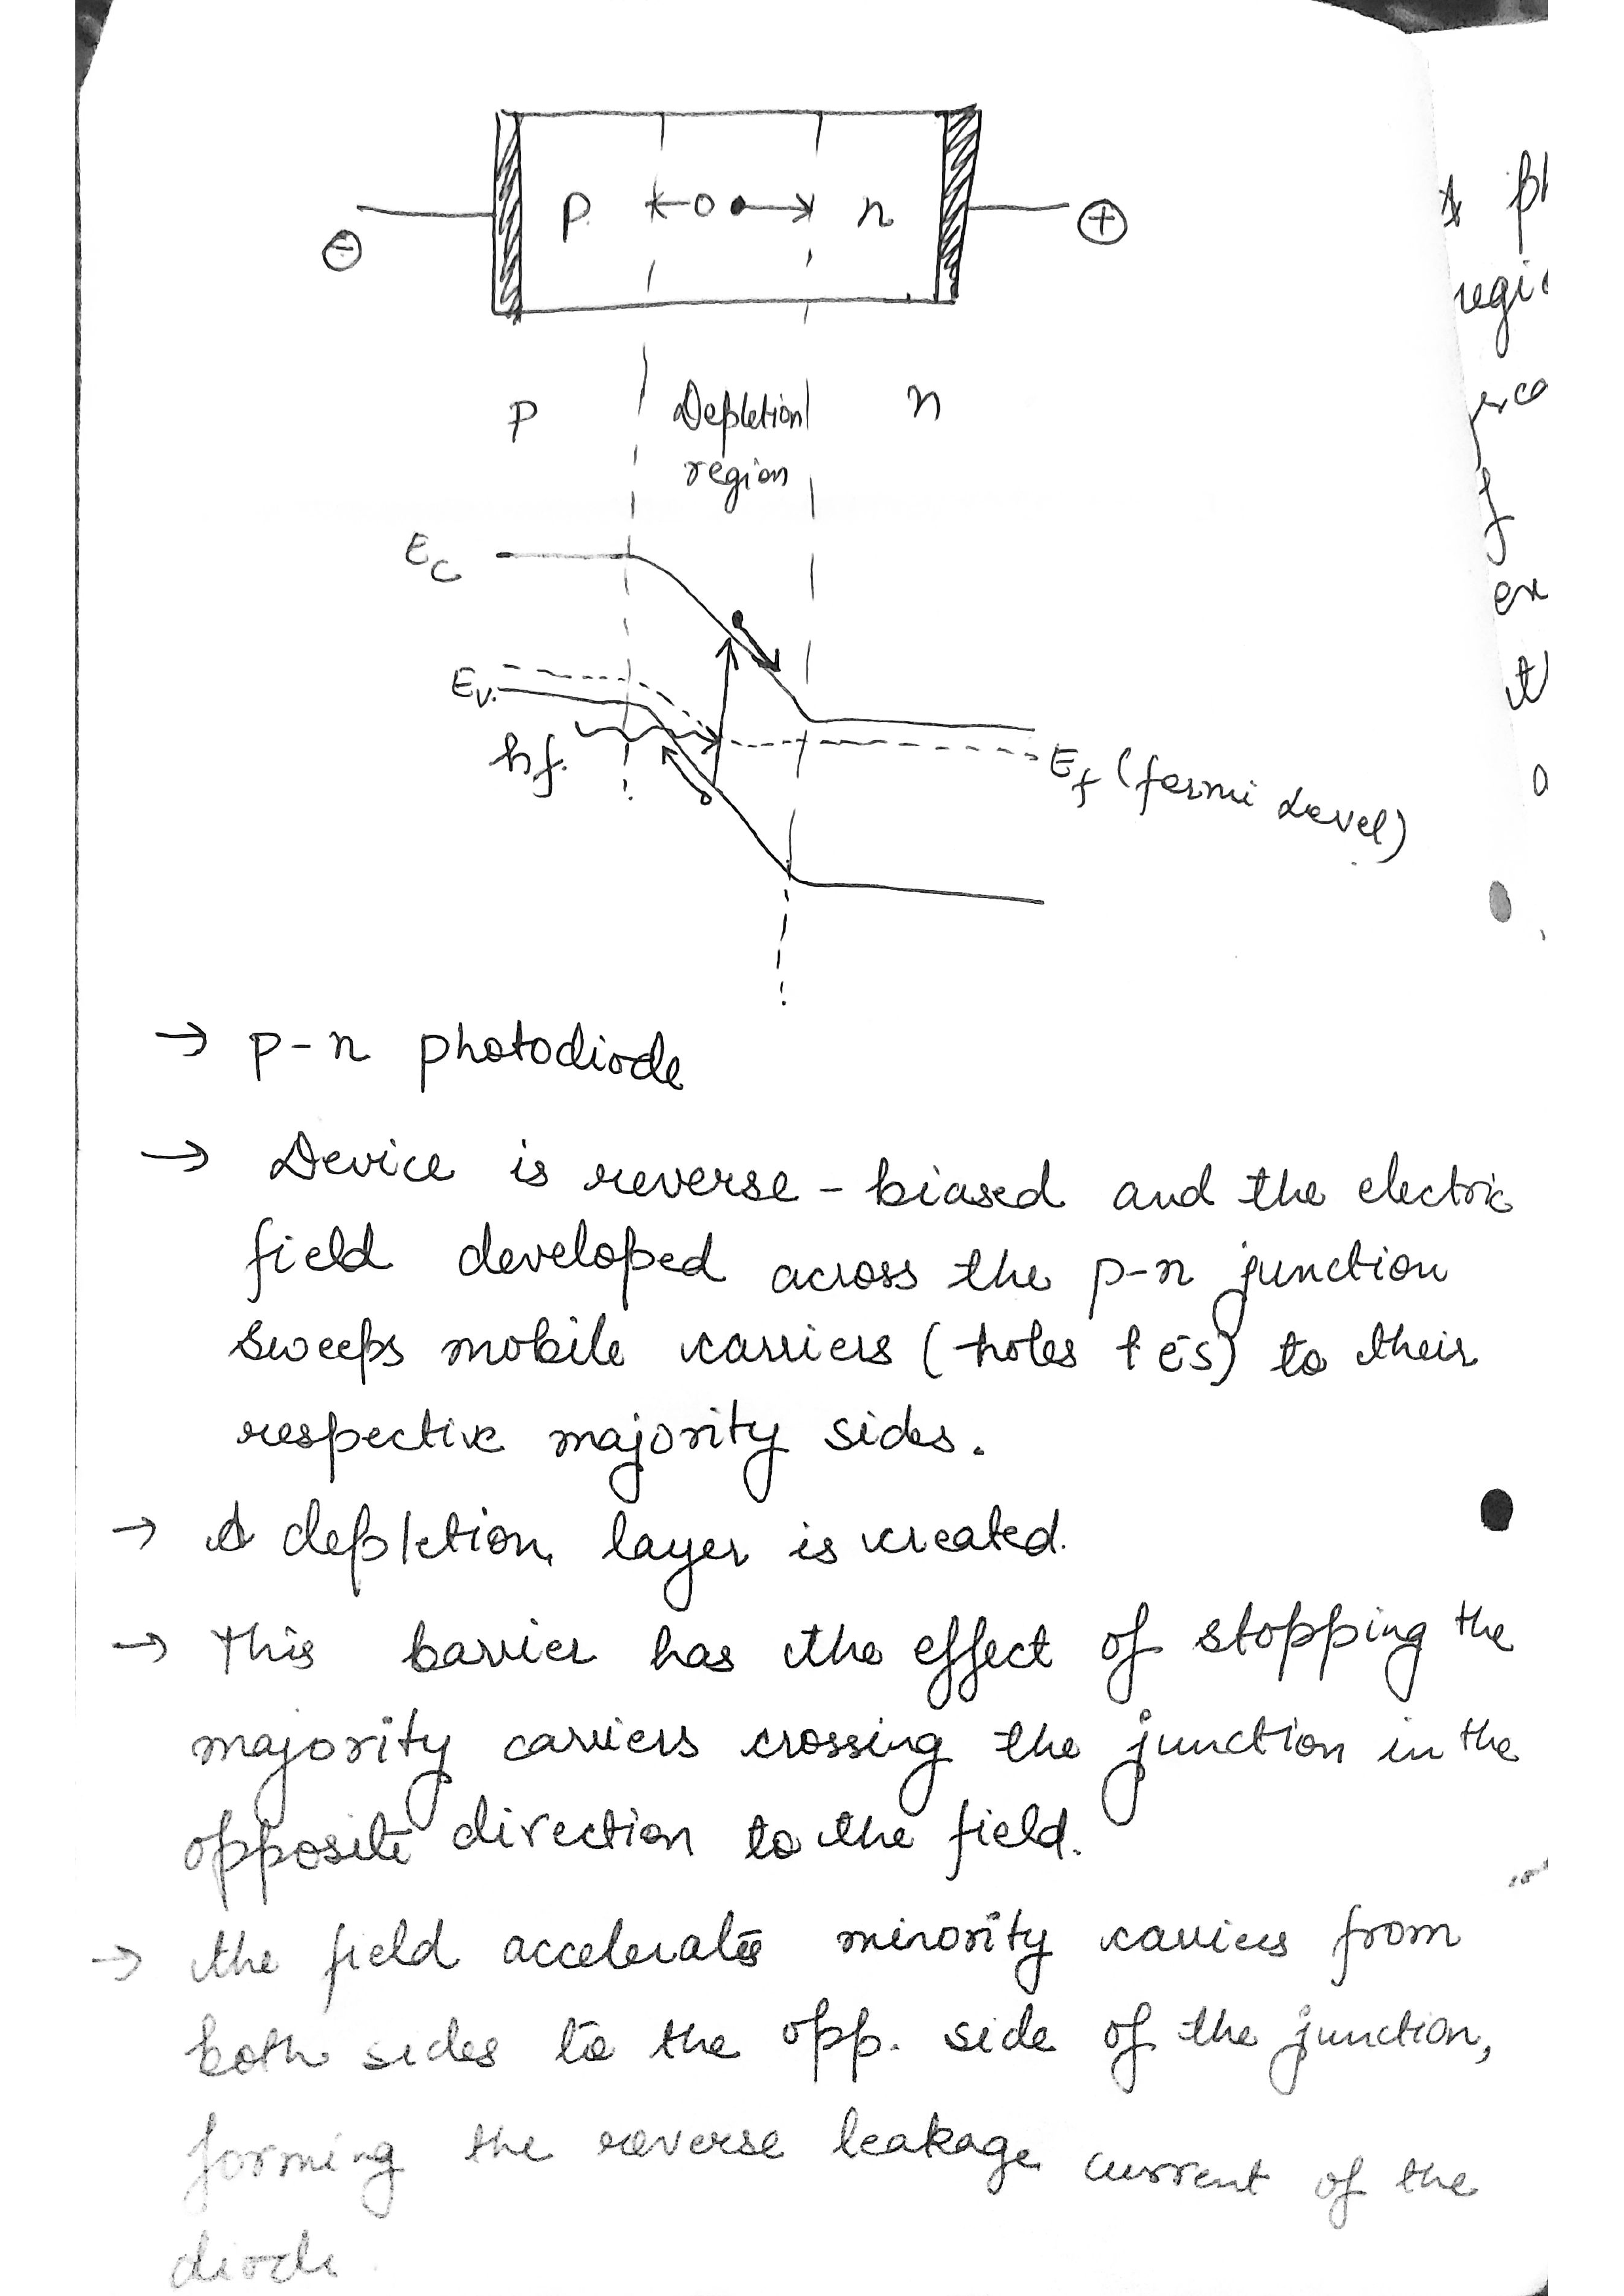 p n
⊖ ⊕
p Depletion n
region
Ec
Ev
hf
Ef (fermi Level)
→ p-n photodiode
→ Device is reverse-biased and the electric
field developed across the p-n junction
sweeps mobile carriers (holes & ēs) to their
respective majority sides.
→ A depletion layer is created.
→ This barrier has the effect of stopping the
majority carriers crossing the junction in the
opposite direction to the field.
→ the field accelerates minority carriers from
both sides to the opp. side of the junction,
forming the reverse leakage current of the
diode.